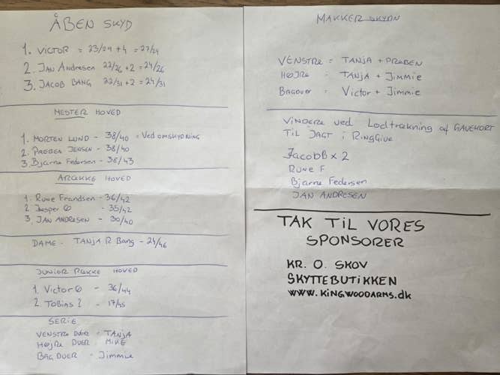 ÅBEN SKYD
1. VICTOR = 23/24 + 4 = 27/24
2. JAN Andresen 22/26 + 2 = 24/26
3. JACOB BANG 22/31 + 2 = 24/31
MESTER HOVED
1. MORTEN LUND - 38/40 + Ved omskydning
2. PREBEN JENSEN - 38/40
3 Bjarne Federsen - 36/43
A RÆKKE HOVED
1. Rune Frandsen - 36/42
2. Jesper - 35/42
3 JAN ANDRESEN - 30/40
DAME - TANJA R Bang - 24/46
JUNIOR RÆKKE HOVED
1. Victor - 36/44
2. Tobias - 17/45
SERIE
VENSTRE DUER - TANJA
HØJRE DUER MIKE
BAG DUER - Jimmie
MAKKER SKYDN
VENSTRE = TANJA + PREBEN
HØJRE - TANJA + Jimmie
BAGDUER - Victor + Jimmie
VINDERE ved Lodtrækning af GAVEKORT
TIL JAGT i RINGGIVE
JacobB x 2
RUNE F
Bjarne Federsen
JAN ANDRESEN
TAK TIL VORES
SPONSORER
KR. O. SKOV
SKYTTEBUTIKKEN
WWW.KINGWOODARMS.DK